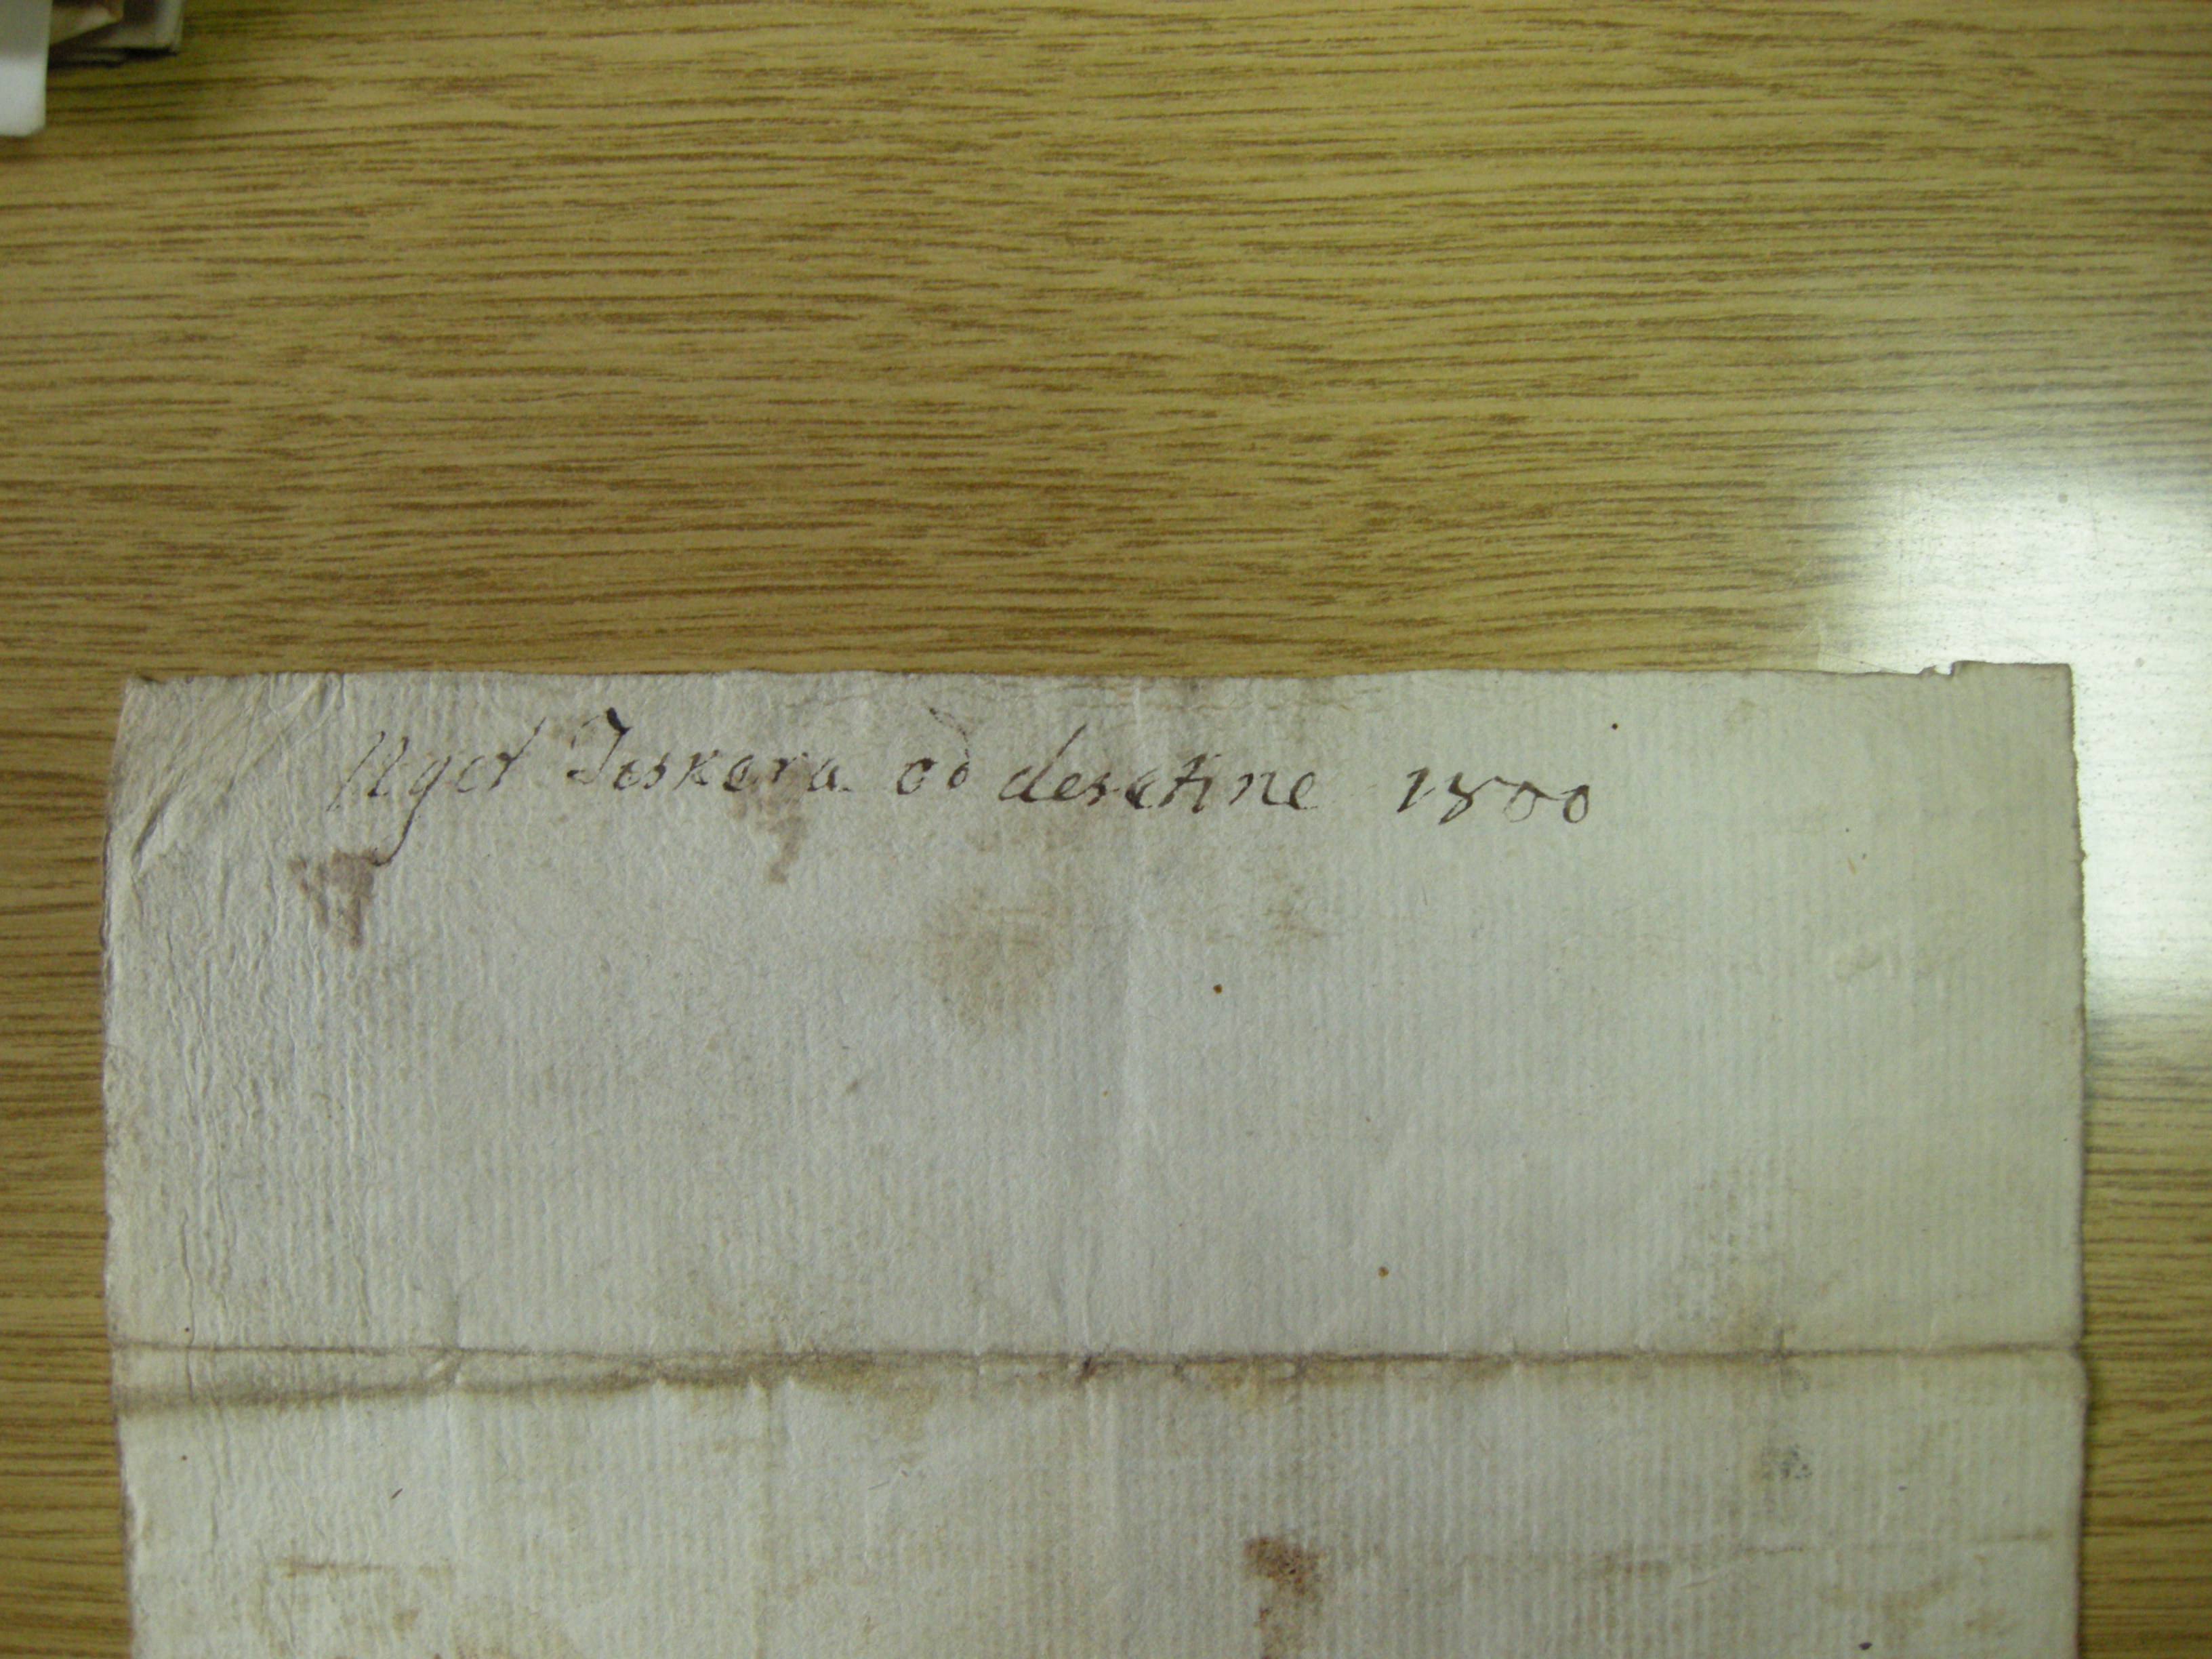 Uget Teskera od desetine 1800